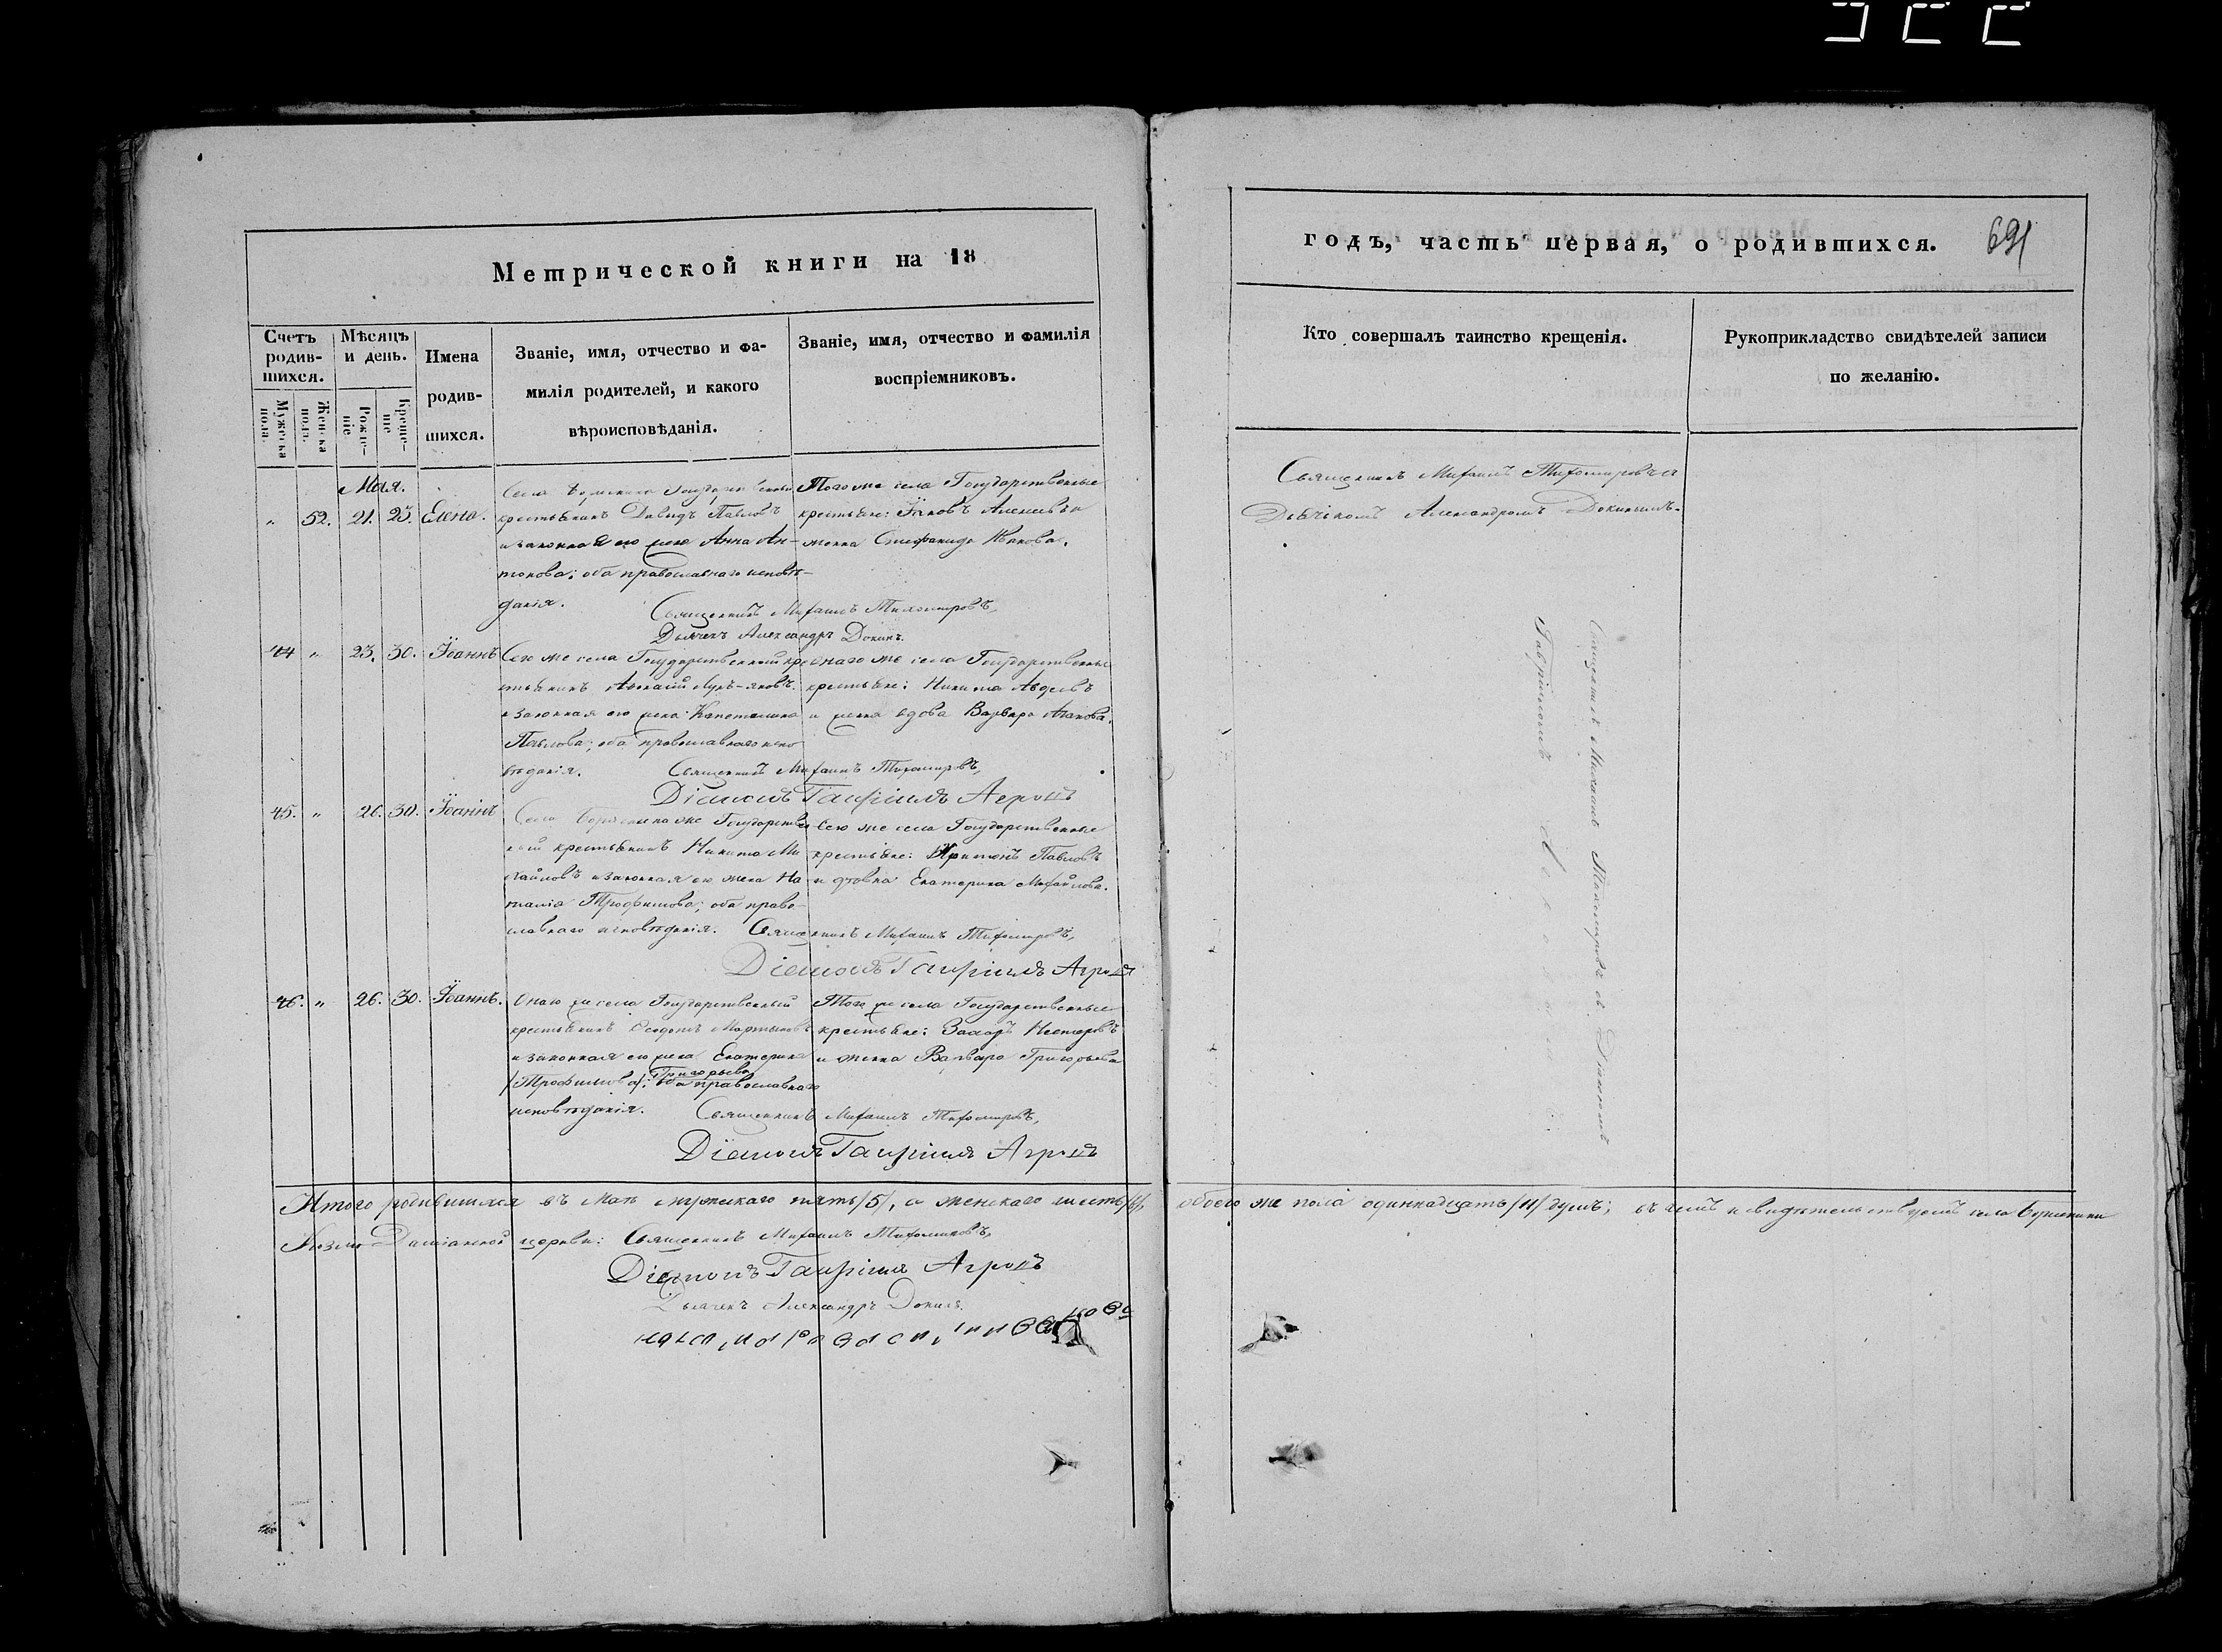 Метрической книги на 18
Счетъ родив-шихся.
Мужеска пола.
Женска пола.
Мѣсяцъ и день.
Рожде-ніе
Креще-ніе
Имена родив-шихся.
Званіе, имя, отчество и фа-
милія родителей, и какого
вѣроисповѣданія.
Званіе, имя, отчество и фамилія
воспріемниковъ.
Мая.
" 52. 21. 23. Елена.
Села Государственный
крестьянинъ Давидъ Павловъ
и законная его жена Анна Ан-
тонова; оба православнаго исповѣ-
данія.
Того же села Государственные
крестьяне: Яковъ Алексѣевъ и
женка Стефанида Иванова.
Священникъ Михаилъ Тихомировъ,
Дьячекъ Александръ Докинъ.
44 " 23. 30. Іоаннъ
Сего же села Государственный кре-
стьянинъ Лукъ-яновъ
и законная его жена Капетолина
Павлова; оба православнаго испо-
вѣданія.
Онаго же села Государственные
крестьяне: Никита Авдѣевъ
и женка вдова Варвара
Священникъ Михаилъ Тихомировъ,
Діаконъ Гавріилъ Агровъ
45. " 26. 30. Іоаннъ
Села же Государствен-
ный крестьянинъ Никита Ми-
хайловъ и законная его жена На-
талія Трофимова; оба право-
славнаго исповѣданія.
Сего же села Государственные
крестьяне: Харитонъ Павловъ
и дѣвка Екатерина Михайлова.
Священникъ Михаилъ Тихомировъ,
Діаконъ Гавріилъ Агровъ
46. " 26. 30. Іоаннъ.
Онаго же села Государственный
крестьянинъ Ѳеодотъ Мартыновъ
и законная его жена Екатерина
Григорьева
/Трофимова/; оба православнаго
исповѣданія.
Того же села Государственные
крестьяне: Захаръ Нестеровъ
и женка Варвара Григорьева
Священникъ Михаилъ Тихомировъ,
Діаконъ Гавріилъ Агровъ
Итого родившихся въ Маѣ мужескаго пять/5/, а женскаго шесть/6/,
Козмо-Даміанской церкви: Священникъ Михаилъ Тихомировъ,
Діаконъ Гавріилъ Агровъ
Дьячекъ Александръ Докинъ.
годъ, часть первая, о родившихся.
691
Кто совершалъ таинство крещенія.
Рукоприкладство свидѣтелей записи
по желанію.
Священникъ Михаилъ Тихомировъ съ
Дьячкомъ Александромъ Докинымъ.
Священникъ Михаилъ Тихомировъ съ Діакономъ
Гавріиломъ
обоего же пола одиннадцать/11/ душъ; въ чемъ и свидѣтельствуемъ села